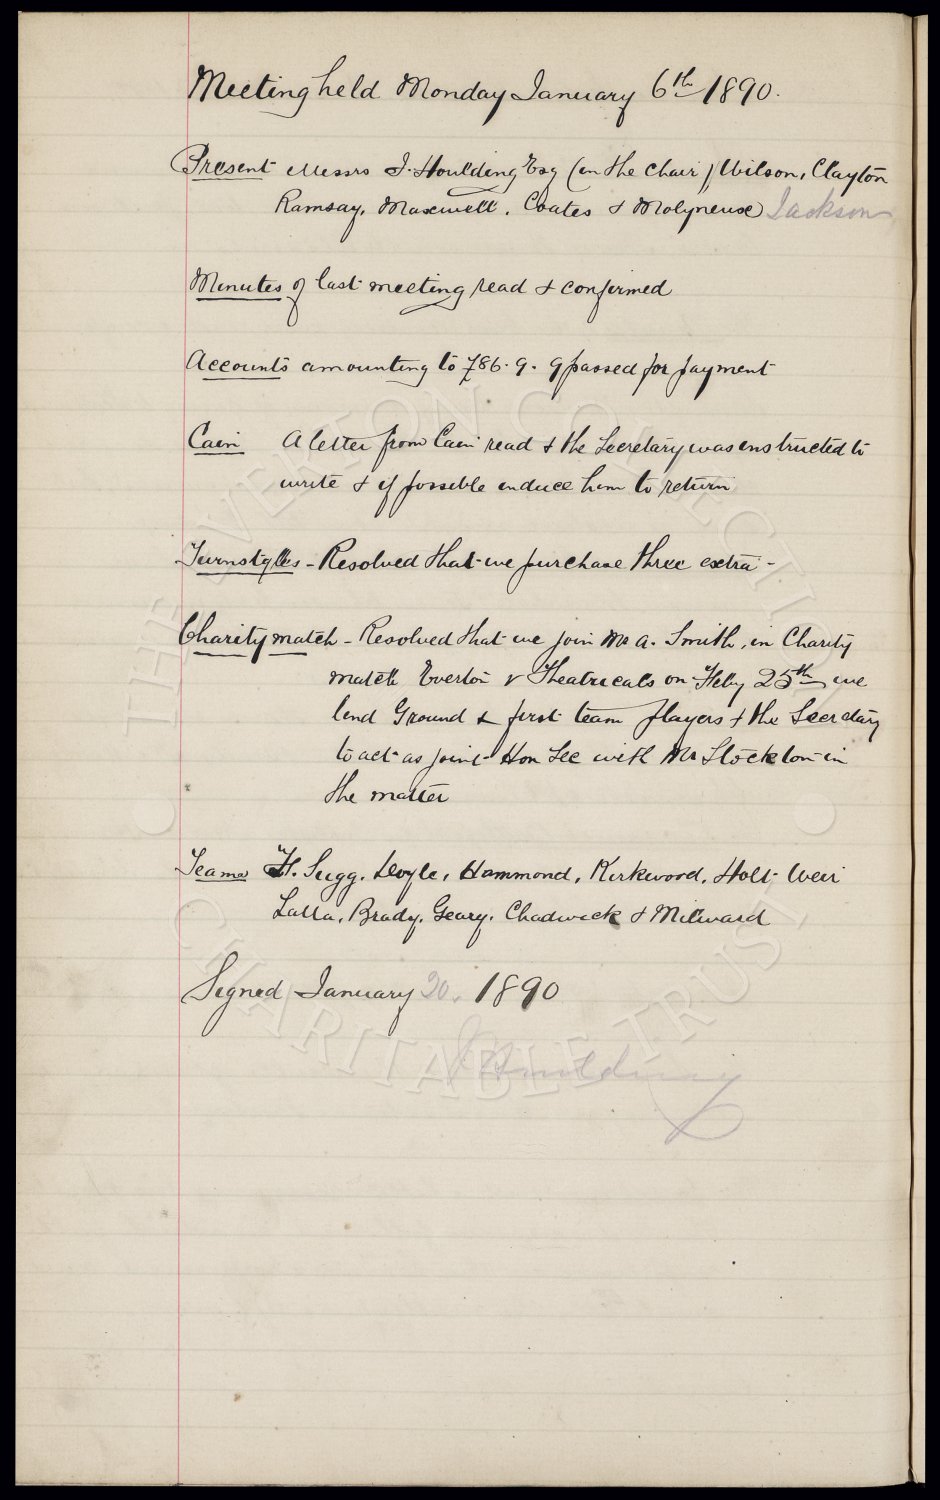 Meeting held Monday January 6th 1890.
Present Messrs J. Houlding Esq (in the chair) Wilson, Clayton
Ramsay, Maxwell, Coates & Molyneux Jackson
Minutes of last meeting read & confirmed
Accounts amounting to £86. 9. 9 passed for payment
Cain A letter from Cain read & the Secretary was instructed to
write & if possible induce him to return
Turnstyles - Resolved that we purchase three extra -
Charity match - Resolved that we join Mr A. Smith, in Charity
match Everton v Theatricals on Feby 25th we
lend Ground & first team players & the Secretary
to act as joint Hon Sec with Mr Stockton in
the matter
Teams H. Sugg, Doyle, Hammond, Kirkwood, Holt Weir
Latta, Brady, Geary, Chadwick & Milward
Signed January 20. 1890
J Houlding
THE EVERTON COLLECTION
CHARITABLE TRUST